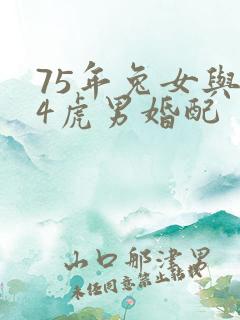 75年兔女與
4虎男婚配
山口那津男
未经同意禁止转载